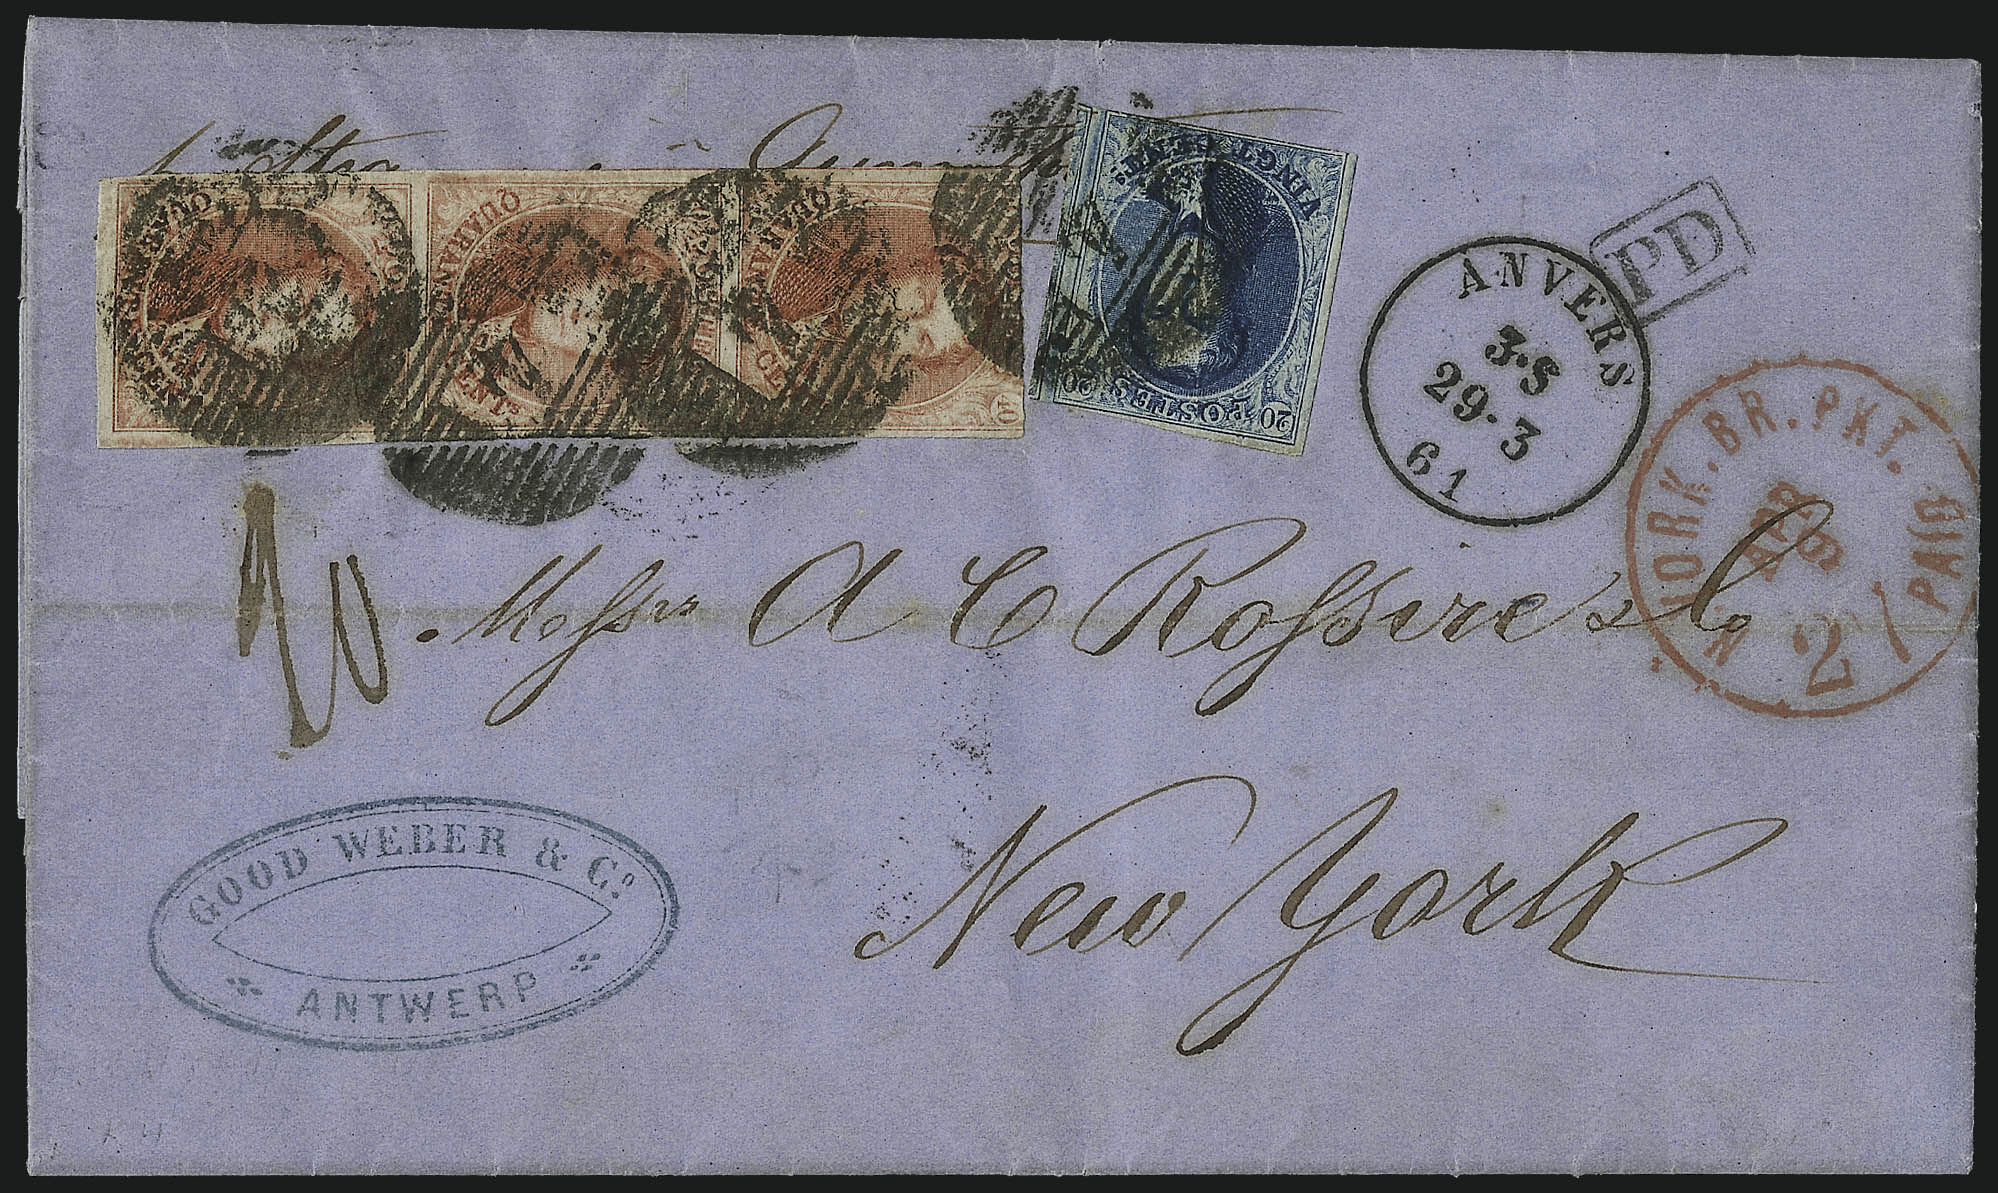 QUARANTE CENTS
QUARANTE CENTS
QUARANTE CENTS
POSTES
20 20
VINGT CENTS
PD
ANVERS
3·S
29·3
61
N. YORK. BR. PKT.
PAID
APR
2
10
Messrs A C Rossire & Co
New York
GOOD WEBER & Co.
ANTWERP